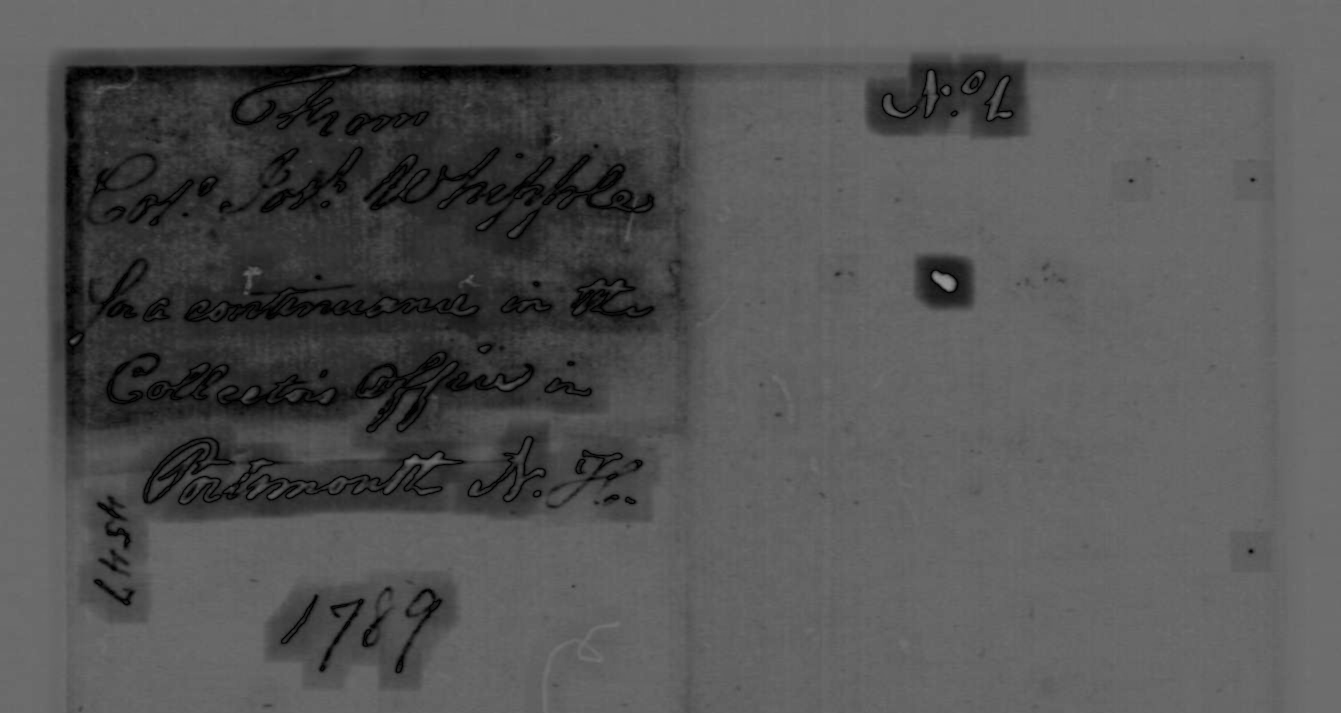 From
Col.º Jos.h Whipple
for a continuance in the
Collectors Office in
Portsmouth N. H.
1789
N.º 1